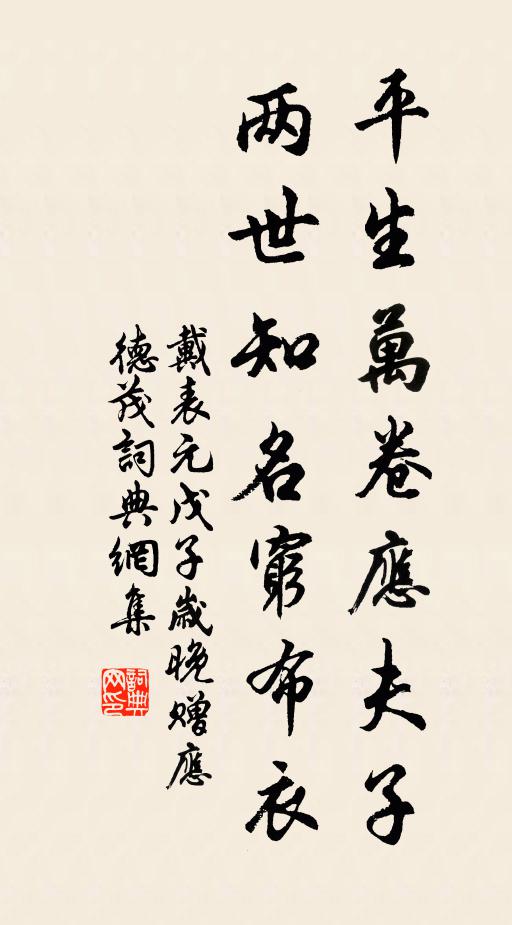 平生萬卷應夫子
两世知名窮布衣
戴表元戊子歲晚贈應
德茂詞典網集
詞典网印